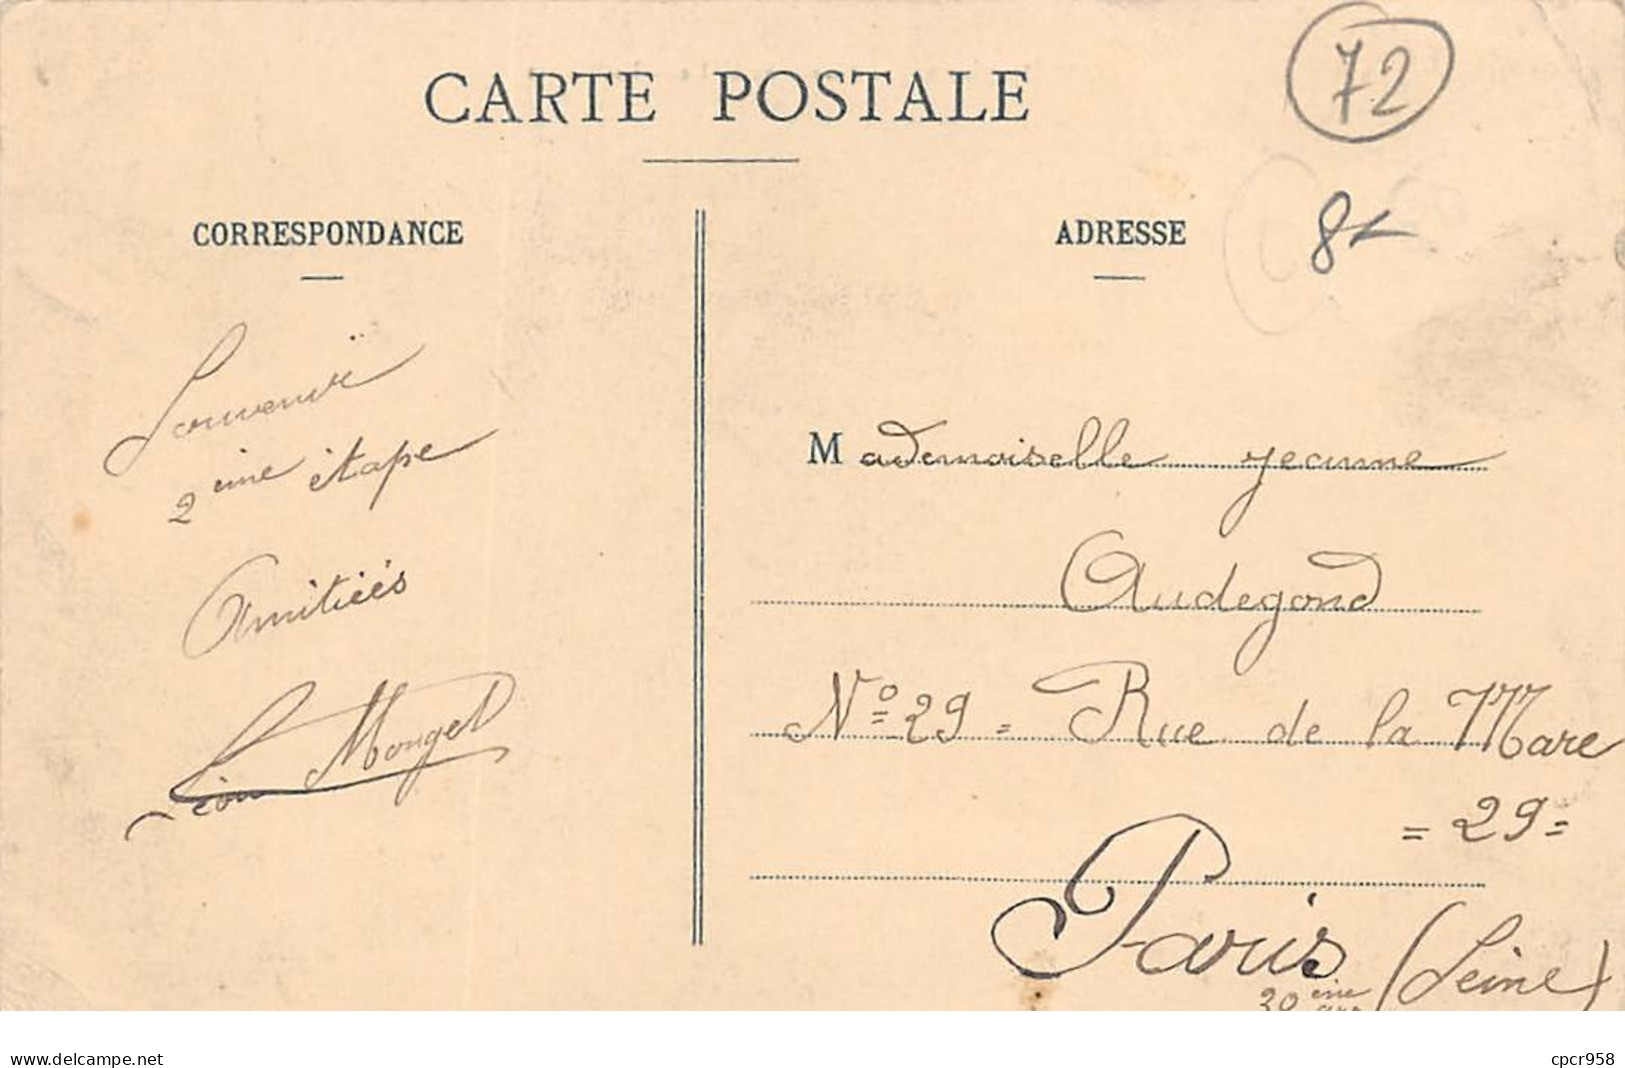 CARTE POSTALE
72
CORRESPONDANCE
Souvenir
2 ème étape
Amitiées
Léon Mouget
ADRESSE
Mademoiselle Jeanne
Audegond
N° 29 = Rue de la Mare
= 29 =
Paris (Seine)
20 ème arr
www.delcampe.net
cpcr958